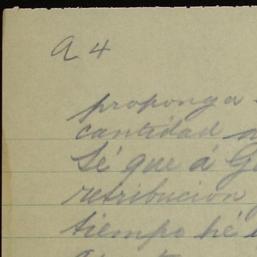 a 4
proponga
cantidad
Sé que á
retribucion
tiempo hé